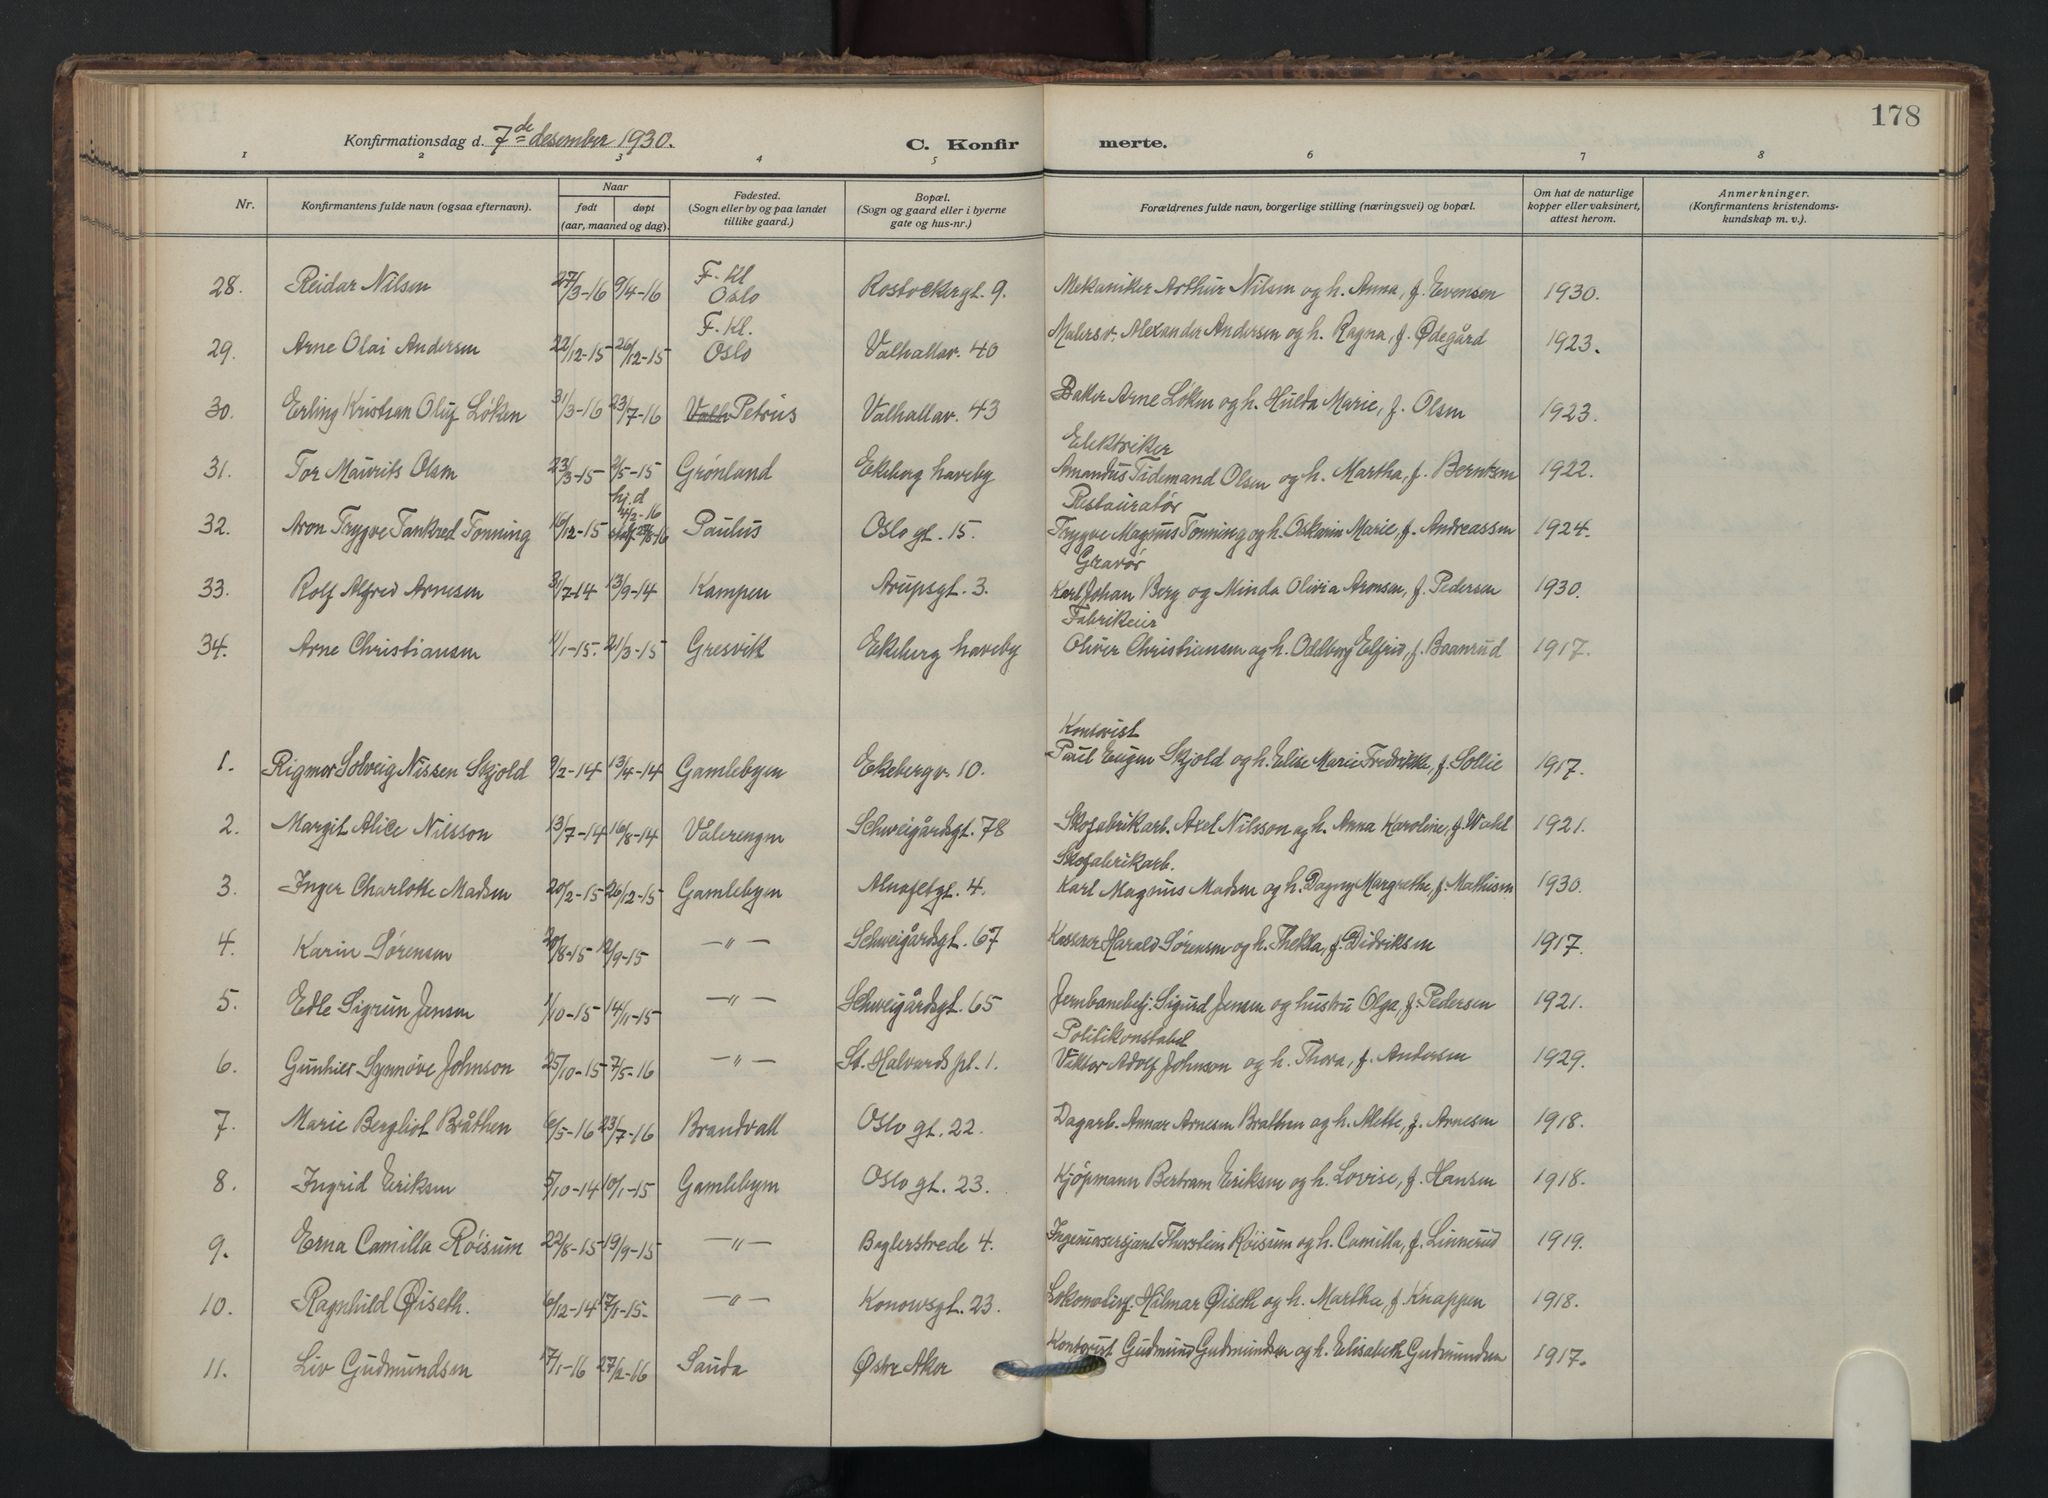 178
Konfirmationsdag d. 7de desember 1930.
C. Konfirmerte.
1 2 3 4 5 6 7 8
Nr.
Konfirmantens fulde navn (ogsaa efternavn).
Naar
født døpt
(aar, maaned og dag).
Fødested.
(Sogn eller by og paa landet
tillike gaard.)
Bopæl.
(Sogn og gaard eller i byerne
gate og hus-nr.)
Forældrenes fulde navn, borgerlige stilling (næringsvei) og bopæl.
Om hat de naturlige
kopper eller vaksinert,
attest herom.
Anmerkninger.
(Konfirmantens kristendoms-
kundskap m. v.).
28. Reidar Nilsen 27/3-16 9/4-16 F. Kl Oslo Rostockergt. 9. Mekaniker Arthur Nilsen og h. Anna, f. Evensen 1930.
29. Arne Olai Andersen 22/12-15 26/12-15 F. Kl. Oslo Valhallav. 40 Malersv. Alexander Andersen og h. Ragna, f. Ødegård 1923.
30. Erling Kristian Oluf Løken 31/3-16 23/7-16 Petrus Valhallav. 43 Baker Arne Løken og h. Hulda Marie, f. Olsen 1923.
31. Tor Maurits Olsen 23/3-15 2/5-15 Grønland Ekeberg haveby Elektriker Amandus Tidemand Olsen og h. Martha, f. Berntsen 1922.
32. Aron Trygve Tankred Tonning 16/12-15 hj.d 14/2-16 Paulus Oslo gt. 15. Restauratør Trygve Magnus Tonning og h. Oskarin Marie, f. Andreassen 1924.
33. Rolf Alfred Arnesen 31/7-14 13/9-14 Kampen Arupsgt. 3. Gravør Karl Johan Berg og Minda Olivia Aronsen, f. Pedersen 1930.
34. Arne Christiansen 11/1-15. 21/3-15 Gresvik Ekeberg haveby Fabrikeier Oliver Christiansen og h. Oddborg Elfrid, f. Baanrud 1917.
1. Rigmor Solveig Nissen Skjold 9/2-14 13/4-14 Gamlebyen Ekebergv. 10. Kontorist Paul Eugen Skjold og h. Elise Marie Fredrikke, f. Sollie 1917.
2. Margit Alice Nilsson 13/7-14 16/8-14 Vålerengen Schweigårdsgt. 78 Skofabrikarb. Axel Nilsson og h. Anna Karoline, f. Wahl 1921.
3. Inger Charlotte Madsen 20/2-15 26/12-15 Gamlebyen Alnafetgt. 4. Skofabrikarb. Karl Magnus Madsen og h. Dagny Margrethe, f. Mathisen 1930.
4. Karin Sørensen 20/8-15 12/9-15 —"— Schweigårdsgt. 67 Kasserer Harald Sørensen og h. Thekla, f. Didriksen 1917.
5. Edle Sigrun Jensen 1/10-15 14/11-15 —"— Schweigårdsgt. 65 Jernbanebetj. Sigurd Jensen og hustru Olga, f. Pedersen 1921.
6. Gunhier Synnøve Johnson 25/10-15 7/5-16 —"— St. Halvards pl. 1. Politikonstabel Viktor Adolf Johnson og h. Thora, f. Andersen 1929.
7. Marie Bergliot Bråthen 6/5-16 23/7-16 Brandvall Oslo gt. 22. Dagarb. Annar Arnesen Bråthen og h. Alette, f. Arnesen 1918.
8. Ingrid Eriksen 5/10-14 10/1-15 Gamlebyen Oslo gt. 23. Kjøpmann Bertram Eriksen og h. Lovise, f. Hansen 1918.
9. Erna Camilla Röisum 22/8-15 19/9-15 —"— Baglerstrede 4. Ingeniørsersjant Thorstein Röisum og h. Camilla, f. Linnerud 1919.
10. Ragnhild Øiseth. 6/12-14 17/1-15- —"— Konowsgt. 23. Lokomotivf. Hilmar Øiseth og h. Martha, f. Knappen 1918.
11. Liv Gudmundsen 17/1-16 27/2-16 Sauda Østre Aker Kontorist Gudmund Gudmundsen og h. Elisabeth Gudmundsen 1917.